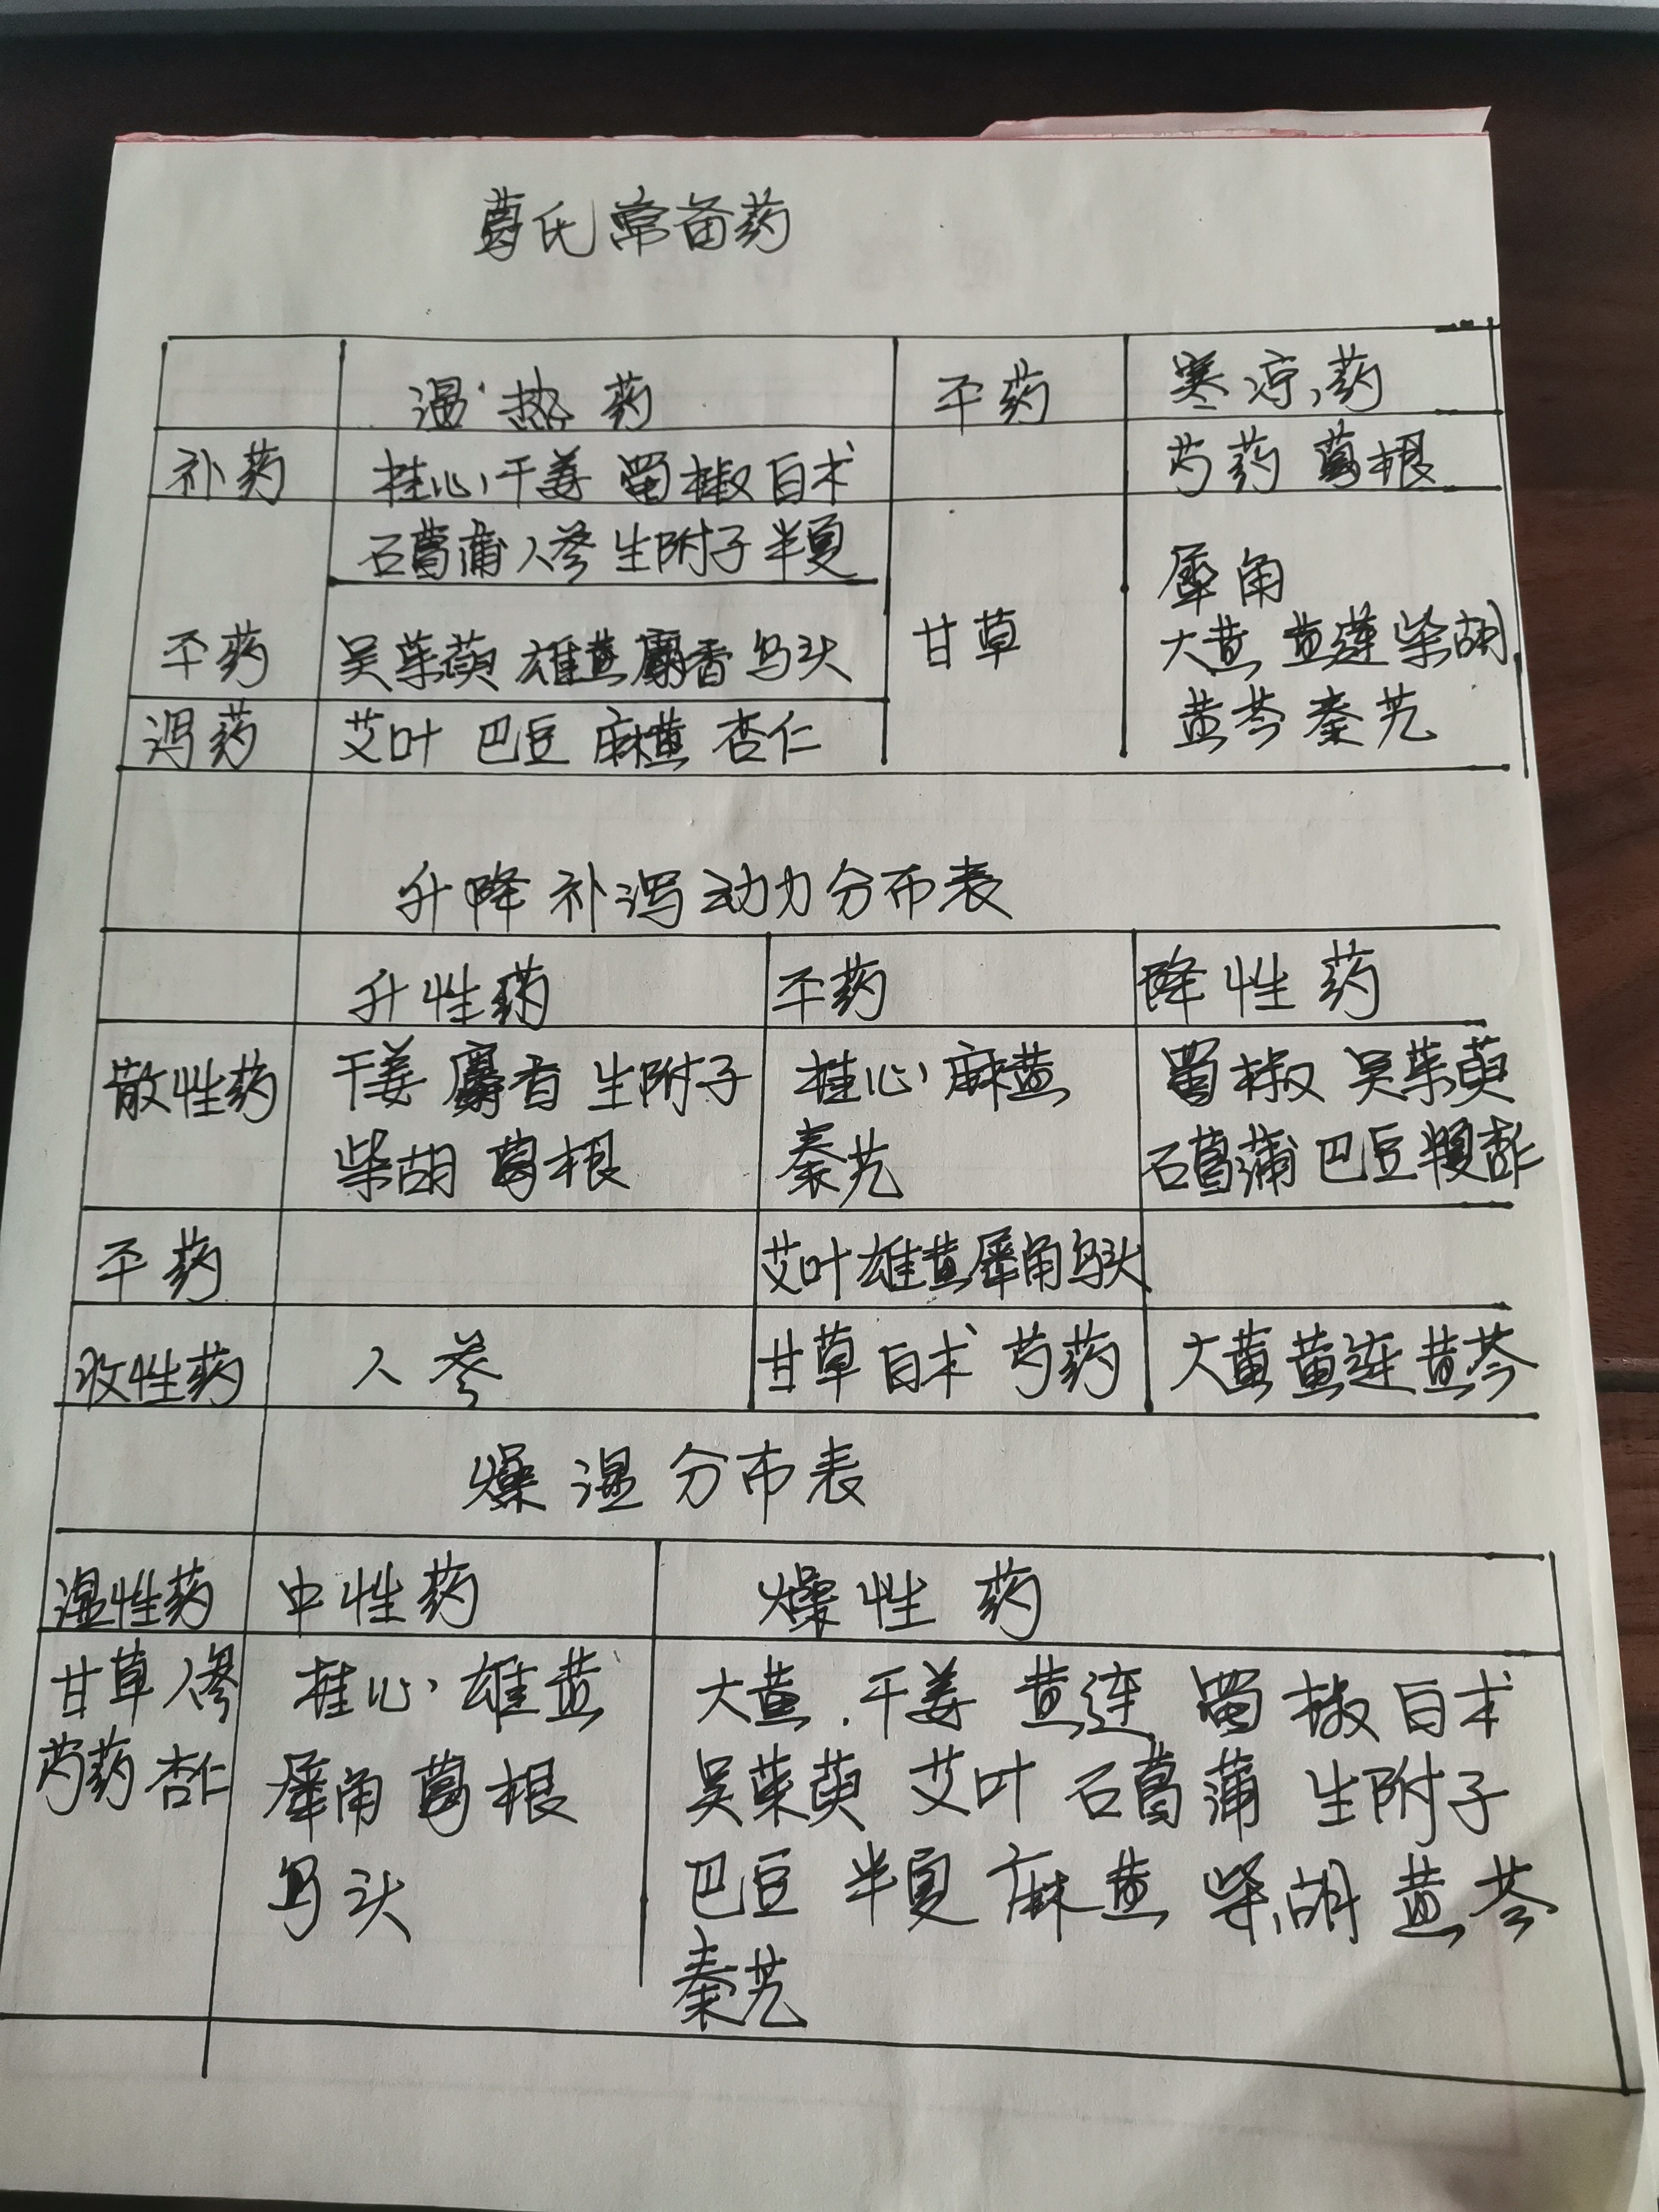 葛氏常备药
温热药 平药 寒凉药
补药 桂心 干姜 蜀椒 白术 芍药 葛根
石菖蒲 人参 生附子 半夏
犀角
平药 吴茱萸 雄黄 麝香 乌头 甘草 大黄 黄莲 柴胡
泻药 艾叶 巴豆 麻黄 杏仁 黄芩 秦艽
升降补泻动力分布表
升性药 平药 降性药
散性药 干姜 麝香 生附子 桂心 麻黄 蜀椒 吴茱萸
柴胡 葛根 秦艽 石菖蒲 巴豆 半夏
平药 艾叶 雄黄 犀角 乌头
收性药 人参 甘草 白术 芍药 大黄 黄连 黄芩
燥湿分布表
湿性药 中性药 燥性药
甘草 人参 桂心 雄黄 大黄 干姜 黄连 蜀椒 白术
芍药 杏仁 犀角 葛根 吴茱萸 艾叶 石菖蒲 生附子
乌头 巴豆 半夏 麻黄 柴胡 黄芩
秦艽